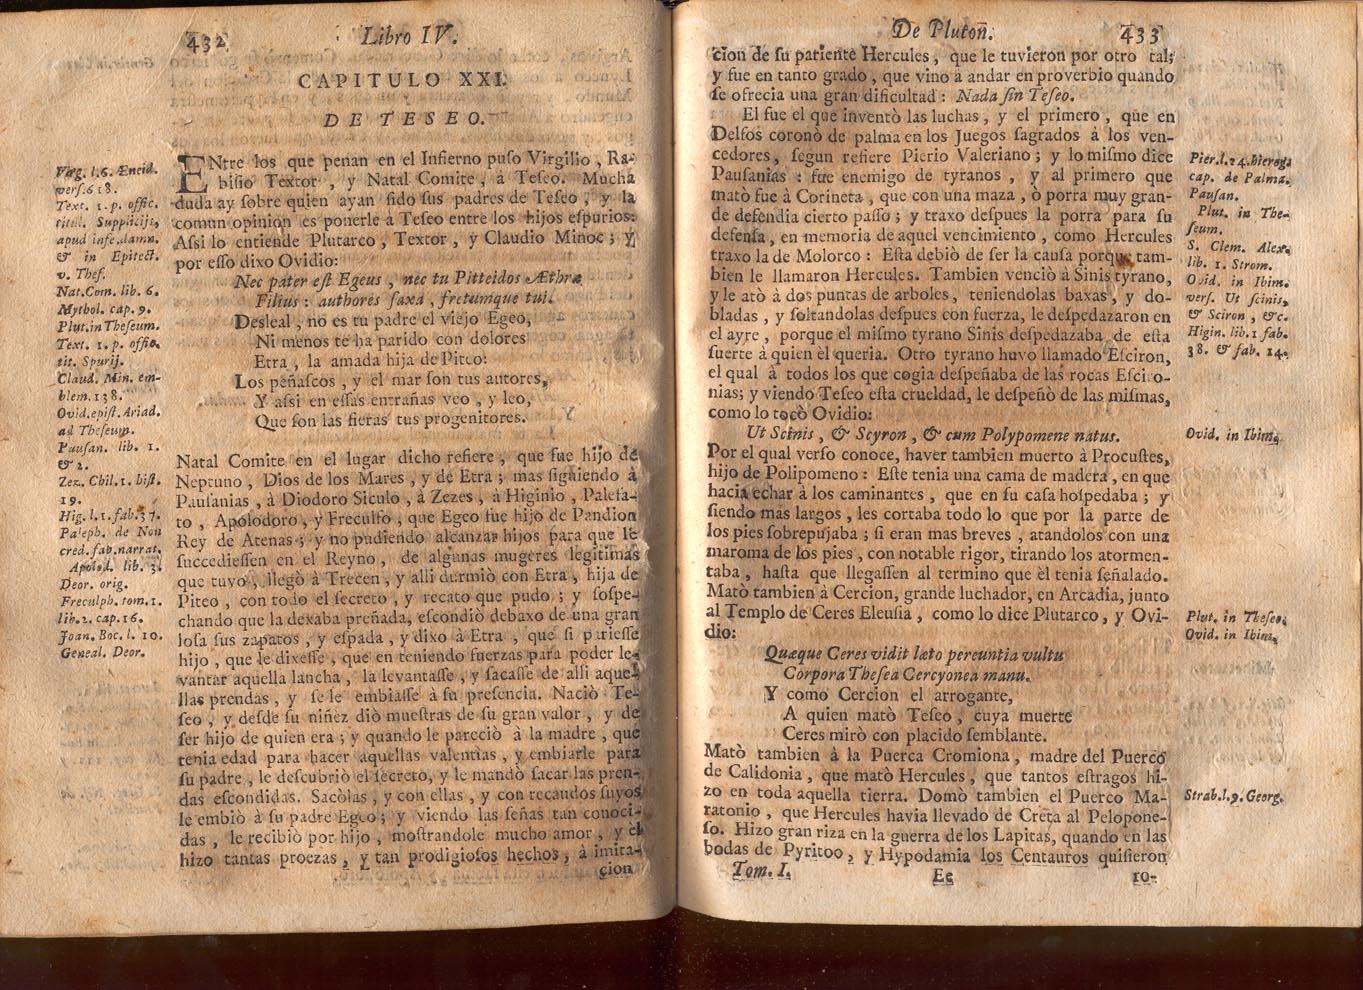 432 Libro IV.
CAPITULO XXI.
DE TESEO.
ENtre los que penan en el Infierno puso Virgilio, Ra-
bisio Textor, y Natal Comite, à Teseo. Mucha
duda ay sobre quien ayan sido sus padres de Teseo, y la
comun opinion es ponerle à Teseo entre los hijos espurios:
Assi lo entiende Plutarco, Textor, y Claudio Minoe; y
por esso dixo Ovidio:
Nec pater est Egeus, nec tu Pitteidos Æthræ
Filius: authores saxa, fretumque tui.
Desleal, no es tu padre el viejo Egeo,
Ni menos te ha parido con dolores
Etra, la amada hija de Piteo:
Los peñascos, y el mar son tus autores,
Y assi en essas entrañas veo, y leo,
Que son las fieras tus progenitores.
Natal Comite en el lugar dicho refiere, que fue hijo de
Neptuno, Dios de los Mares, y de Etra; mas siguiendo à
Pausanias, à Diodoro Siculo, à Zezes, à Higinio, Palefa-
to, Apolodoro, y Freculfo, que Egeo fue hijo de Pandion
Rey de Atenas; y no pudiendo alcanzar hijos para que le
succediessen en el Reyno, de algunas mugeres legitimas
que tuvo, llegò à Trecen, y alli durmiò con Etra, hija de
Piteo, con todo el secreto, y recato que pudo; y sospe-
chando que la dexaba preñada, escondiò debaxo de una gran
losa sus zapatos, y espada, y dixo à Etra, que si pariesse
hijo, que le dixesse, que en teniendo fuerzas para poder le-
vantar aquella lancha, la levantasse, y sacasse de alli aque-
llas prendas, y se le embiasse à su presencia. Naciò Te-
seo, y desde su niñez diò muestras de su gran valor, y de
ser hijo de quien era; y quando le pareciò à la madre, que
tenia edad para hacer aquellas valentias, y embiarle para
su padre, le descubriò el secreto, y le mandò sacar las pren-
das escondidas. Sacòlas, y con ellas, y con recaudos suyos
le embiò à su padre Egeo; y viendo las señas tan conoci-
das, le recibiò por hijo, mostrandole mucho amor, y èl
hizo tantas proezas, y tan prodigiosos hechos, à imita-
cion
Virg. l.6. Æneid.
vers.618.
Text. 1. p. offic.
titul. Supplicijs,
apud infe. damn.
& in Epitect.
v. Thes.
Nat.Com. lib. 6.
Mythol. cap. 9.
Plut.in Theseum.
Text. 1. p. offic.
tit. Spurij.
Claud. Min. em-
blem.138.
Ovid.epist.Ariad.
ad Theseum.
Pausan. lib. 1.
& 2.
Zez. Chil.1. hist.
19.
Hig. l.1. fab.37.
Paleph. de Non
cred. fab.narrat.
Apolod. lib. 3.
Deor. orig.
Freculph. tom.1.
lib.2. cap.16.
Joan. Boc. l. 10.
Geneal. Deor.
De Pluton. 433
cion de su pariente Hercules, que le tuvieron por otro tal;
y fue en tanto grado, que vino à andar en proverbio quando
se ofrecia una gran dificultad: Nada sin Teseo.
El fue el que inventò las luchas, y el primero, que en
Delfos coronò de palma en los Juegos sagrados à los ven-
cedores, segun refiere Pierio Valeriano; y lo mismo dice
Pausanias: fue enemigo de tyranos, y al primero que
matò fue à Corineta, que con una maza, ò porra muy gran-
de defendia cierto passo; y traxo despues la porra para su
defensa, en memoria de aquel vencimiento, como Hercules
traxo la de Molorco: Esta debiò de ser la causa porque tam-
bien le llamaron Hercules. Tambien venciò à Sinis tyrano,
y le atò à dos puntas de arboles, teniendolas baxas, y do-
bladas, y soltandolas despues con fuerza, le despedazaron en
el ayre, porque el mismo tyrano Sinis despedazaba de esta
suerte à quien èl queria. Otro tyrano huvo llamado Esciron,
el qual à todos los que cogia despeñaba de las rocas Esciro-
nias; y viendo Teseo esta crueldad, le despeñò de las mismas,
como lo tocò Ovidio:
Ut Scinis, & Scyron, & cum Polypomene natus.
Por el qual verso conoce, haver tambien muerto à Procustes,
hijo de Polipomeno: Este tenia una cama de madera, en que
hacia echar à los caminantes, que en su casa hospedaba; y
siendo mas largos, les cortaba todo lo que por la parte de
los pies sobrepujaba; si eran mas breves, atandolos con una
maroma de los pies, con notable rigor, tirando los atormen-
taba, hasta que llegassen al termino que èl tenia señalado.
Matò tambien à Cercion, grande luchador, en Arcadia, junto
al Templo de Ceres Eleusia, como lo dice Plutarco, y Ovi-
dio:
Quæque Ceres vidit læto pereuntia vultu
Corpora Thesea Cercyonea manu.
Y como Cercion el arrogante,
A quien matò Teseo, cuya muerte
Ceres mirò con placido semblante.
Matò tambien à la Puerca Cromiona, madre del Puerco
de Calidonia, que matò Hercules, que tantos estragos hi-
zo en toda aquella tierra. Domò tambien el Puerco Ma-
ratonio, que Hercules havia llevado de Creta al Pelopone-
so. Hizo gran riza en la guerra de los Lapitas, quando en las
bodas de Pyritoo, y Hypodamia los Centauros quisieron
Tom. I. Ee ro-
Pier.l.24.hierog.
cap. de Palma.
Pausan.
Plut. in The-
seum.
S. Clem. Alex.
lib. 1. Strom.
Ovid. in Ibim.
vers. Ut scinis,
& Sciron, &c.
Higin. lib.1 fab.
38. & fab. 14.
Ovid. in Ibim.
Plut. in Theseo.
Ovid. in Ibim.
Strab.l.9. Georg.